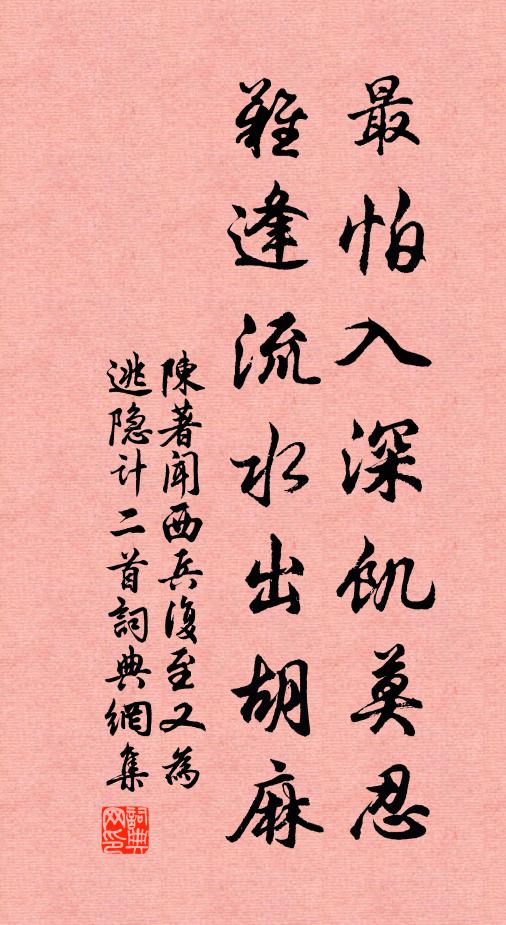 最怕入深飢莫忍
難逢流水出胡麻
陳著聞西兵復至又為
逃隐计二首詞典網集
詞典网印